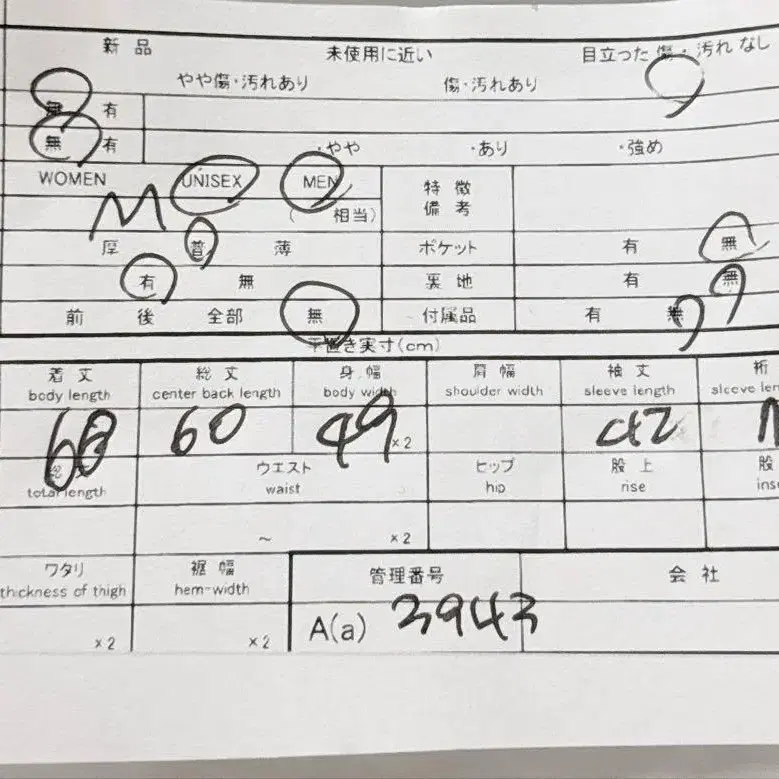 新品 未使用に近い 目立った傷・汚れなし
やや傷・汚れあり 傷・汚れあり
無 有
無 有 ・やや ・あり ・強め
WOMEN UNISEX MEN 特徴
M ( 相当) 備考
厚 普 薄 ポケット 有 無
有 無 裏地 有 無
前 後 全部 無 付属品 有 無
平置き実寸(cm)
着丈 総丈 身幅 肩幅 袖丈 裄
body length center back length body width shoulder width sleeve length sleeve len
60 49 ×2 42
総丈 ウエスト ヒップ 股上 股
total length waist hip rise ins
～ ×2
ワタリ 裾幅 管理番号 会社
thickness of thigh hem-width
×2 ×2 A(a) 3943